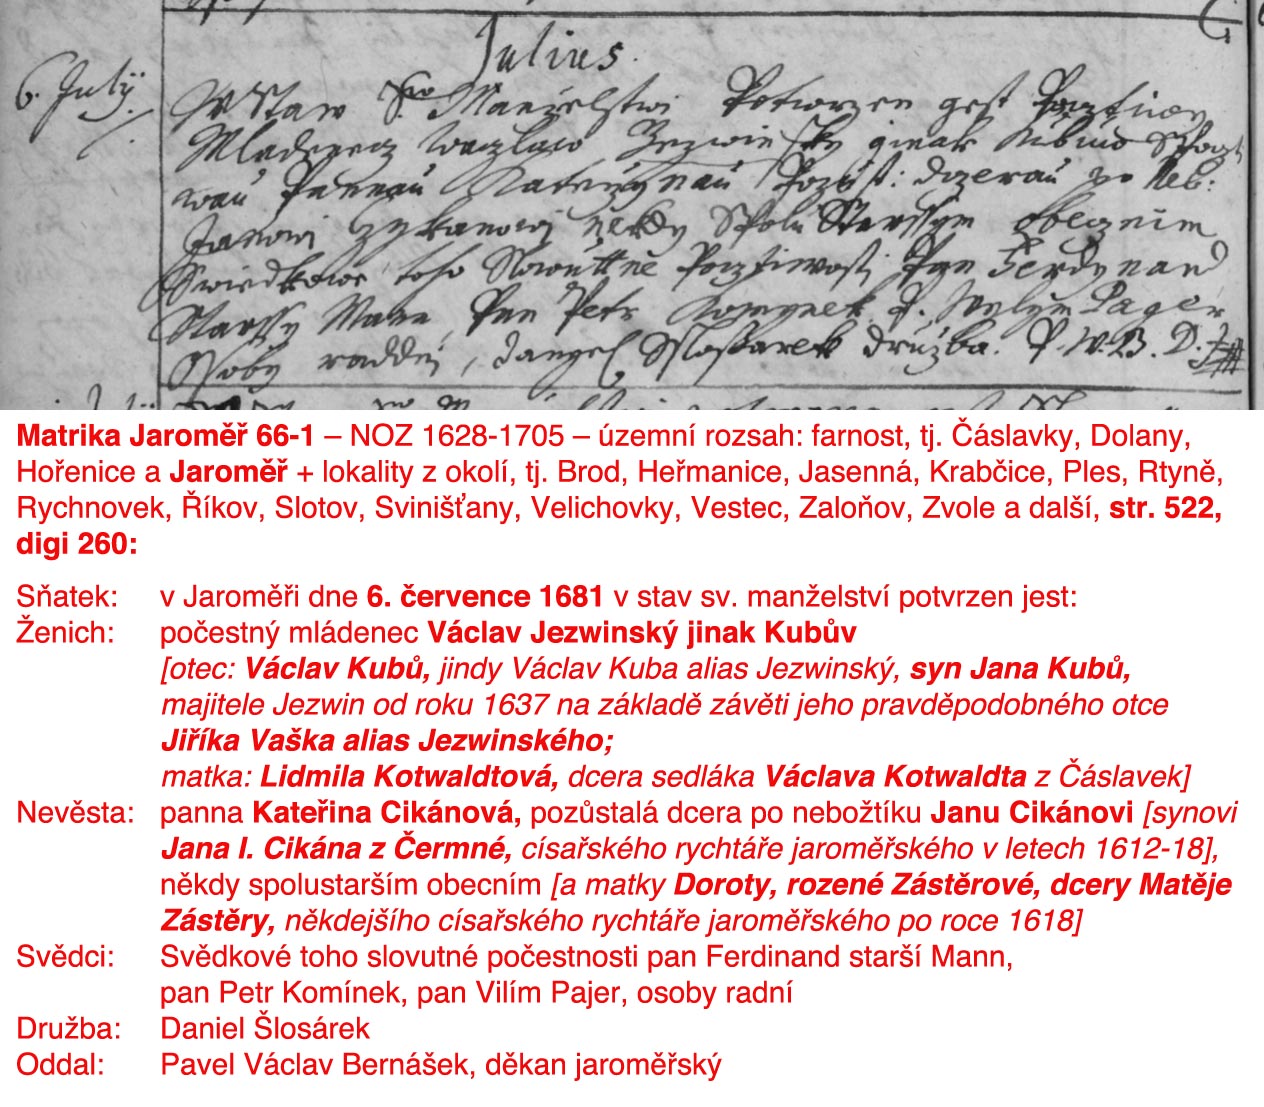 Julius.
6. July
W Staw S. Manželstwi Potwrzen gest Pocztiwy
Mladenecz Waczlaw Jezwinsky ginak Kubuw
Pannau Katerzynau Pozust: dczerau po Neb:
Janowi Cykanowi někdy Spolu Starssym obecznim
Swiedkowe toho Slowutné Pocztiwosti Pan Ferdynand
Starssy Mann, Pan Petr Komynek, P. Wylym Pager
Osoby raddni, Danyel Slosarek družba. P. W. B. D. J.
Matrika Jaroměř 66-1 – NOZ 1628-1705 – územní rozsah: farnost, tj. Čáslavky, Dolany,
Hořenice a Jaroměř + lokality z okolí, tj. Brod, Heřmanice, Jasenná, Krabčice, Ples, Rtyně,
Rychnovek, Říkov, Slotov, Svinišťany, Velichovky, Vestec, Zaloňov, Zvole a další, str. 522,
digi 260:
Sňatek: v Jaroměři dne 6. července 1681 v stav sv. manželství potvrzen jest:
Ženich: počestný mládenec Václav Jezwinský jinak Kubův
[otec: Václav Kubů, jindy Václav Kuba alias Jezwinský, syn Jana Kubů,
majitele Jezwin od roku 1637 na základě závěti jeho pravděpodobného otce
Jiříka Vaška alias Jezwinského;
matka: Lidmila Kotwaldtová, dcera sedláka Václava Kotwaldta z Čáslavek]
Nevěsta: panna Kateřina Cikánová, pozůstalá dcera po nebožtíku Janu Cikánovi [synovi
Jana I. Cikána z Čermné, císařského rychtáře jaroměřského v letech 1612-18],
někdy spolustarším obecním [a matky Doroty, rozené Zástěrové, dcery Matěje
Zástěry, někdejšího císařského rychtáře jaroměřského po roce 1618]
Svědci: Svědkové toho slovutné počestnosti pan Ferdinand starší Mann,
pan Petr Komínek, pan Vilím Pajer, osoby radní
Družba: Daniel Šlosárek
Oddal: Pavel Václav Bernášek, děkan jaroměřský